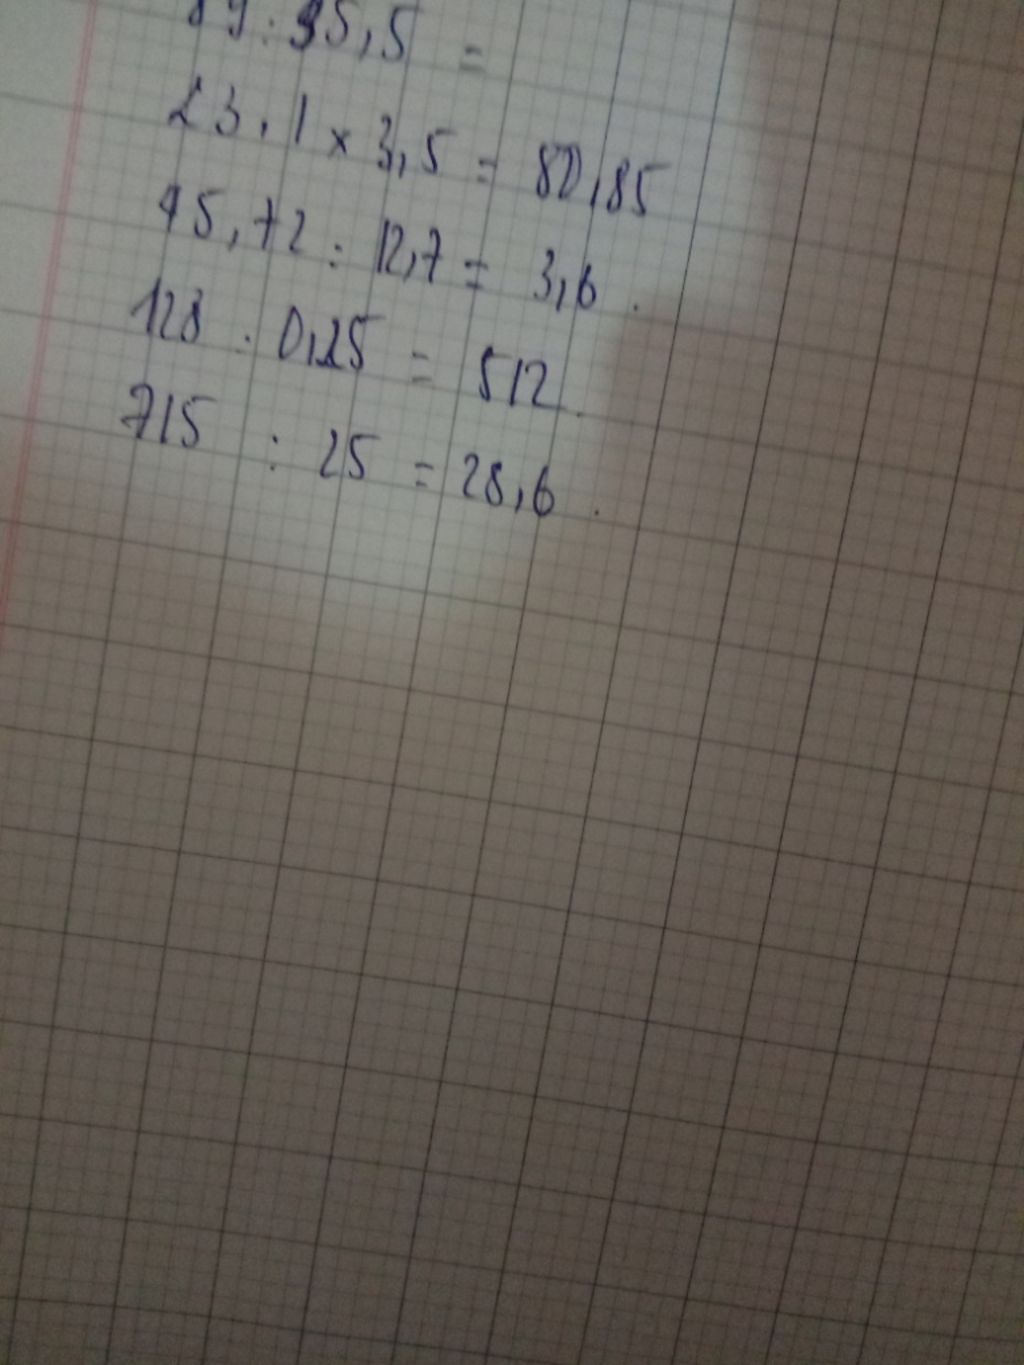 : 35,5 =
23,1 × 3,5 = 80,85
45,72 : 12,7 = 3,6.
128 : 0,25 = 512.
715 : 25 = 28,6.